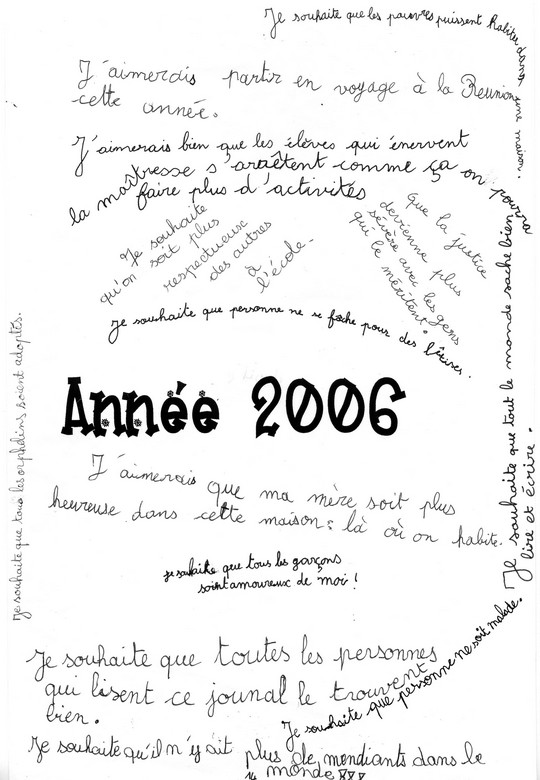 Je souhaite que les pauvres puissent habiter dans une maison.
J'aimerais partir en voyage à la Réunion
cette année.
J'aimerais bien que les élèves qui énervent
la maîtresse s'arrêtent comme ça on pourra
faire plus d'activités
Je souhaite
qu'on soit plus
respectueux
des autres
à
l'école.
Que la justice
devienne plus
sévère avec les gens
qui le méritent.
Je souhaite que personne ne se fâche pour des bêtises.
Je souhaite que tous les orphelins soient adoptés.
Je souhaite que tout le monde sache bien
lire et écrire.
Année 2006
J'aimerais que ma mère soit plus
heureuse dans cette maison : là où on habite.
je souhaite que tous les garçons
soint amoureux de moi !
Je souhaite que personne ne soit malade.
Je souhaite que toutes les personnes
qui lisent ce jounal le trouvent
bien.
Je souhaite qu'il n'y ait plus de mendiants dans le
monde